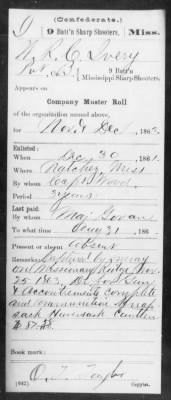 (Confederate.)
9 Batt'n Sharp Shooters, Miss.
Ivery
9 Batt'n
Mississippi Sharp Shooters.
Appears on
Company Muster Roll
of the organization named above,
for Nov & Dec, 1863.
Enlisted:
When Dec 30, 1861.
Where Natchez Miss
By whom Capt Wood
Period 3 years
Last paid:
By whom Maj Govan
To what time Aug 31, 186
Present or absent Absent
Remarks: Captured by enemy
on Missionary Ridge Nov.
25 1863. Gun
& Accoutrements complete
and ammunition
sack Haversack Canteen
Book mark:
(642)
Copyist.